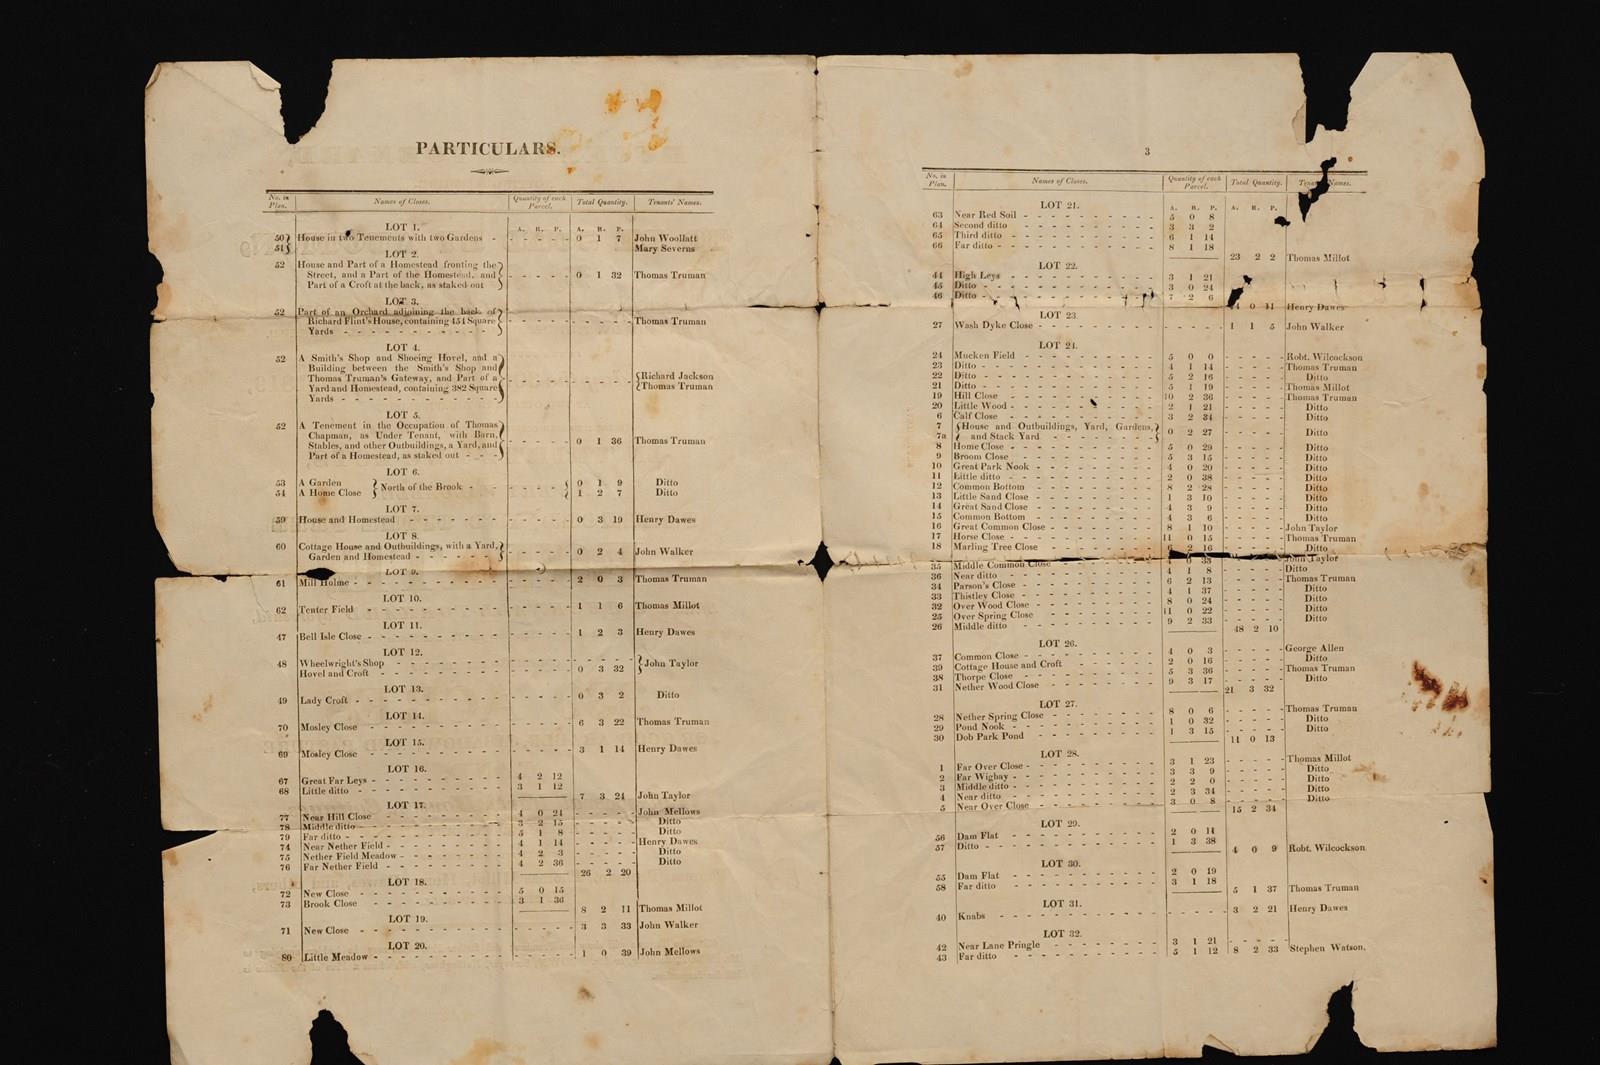 PARTICULARS.
No. in Plan. Names of Closes. Quantity of each Parcel. Total Quantity. Tenants' Names.
A. R. P. A. R. P.
LOT 1.
50 House in two Tenements with two Gardens - - - - - - 0 1 7 John Woollatt
51 Mary Severns
LOT 2.
52 House and Part of a Homestead fronting the
Street, and a Part of the Homestead, and - - - - - 0 1 32 Thomas Truman
Part of a Croft at the back, as staked out
LOT 3.
52 Part of an Orchard adjoining the back of
Richard Flint's House, containing 454 Square Thomas Truman
Yards
LOT 4.
52 A Smith's Shop and Shoeing Hovel, and a
Building between the Smith's Shop and
Thomas Truman's Gateway, and Part of a Richard Jackson
Yard and Homestead, containing 382 Square Thomas Truman
Yards
LOT 5.
52 A Tenement in the Occupation of Thomas
Chapman, as Under Tenant, with Barn,
Stables, and other Outbuildings, a Yard, and 0 1 36 Thomas Truman
Part of a Homestead, as staked out
LOT 6.
53 A Garden 0 1 9 Ditto
North of the Brook
54 A Home Close 1 2 7 Ditto
LOT 7.
59 House and Homestead 0 3 19 Henry Dawes
LOT 8.
60 Cottage House and Outbuildings, with a Yard,
Garden and Homestead 0 2 4 John Walker
LOT 9.
61 Mill Holme 2 0 3 Thomas Truman
LOT 10.
62 Tenter Field 1 1 6 Thomas Millot
LOT 11.
47 Bell Isle Close 1 2 3 Henry Dawes
LOT 12.
48 Wheelwright's Shop John Taylor
Hovel and Croft 0 3 32
LOT 13.
49 Lady Croft 0 3 2 Ditto
LOT 14.
70 Mosley Close 6 3 22 Thomas Truman
LOT 15.
69 Mosley Close 3 1 14 Henry Dawes
LOT 16.
67 Great Far Leys 4 2 12
68 Little ditto 3 1 12
7 3 24 John Taylor
LOT 17.
77 Near Hill Close 4 0 24 John Mellows
78 Middle ditto 3 2 15 Ditto
79 Far ditto 5 1 8 Ditto
74 Near Nether Field 4 1 14 Henry Dawes
75 Nether Field Meadow 4 2 3 Ditto
76 Far Nether Field 4 2 36 Ditto
26 2 20
LOT 18.
72 New Close 5 0 15
73 Brook Close 3 1 36
8 2 11 Thomas Millot
LOT 19.
71 New Close 3 3 33 John Walker
LOT 20.
80 Little Meadow 1 0 39 John Mellows
3
No. in Plan. Names of Closes. Quantity of each Parcel. Total Quantity. Names.
A. R. P. A. R. P.
LOT 21.
63 Near Red Soil 5 0 8
64 Second ditto 3 3 2
65 Third ditto 6 1 14
66 Far ditto 8 1 18
23 2 2 Thomas Millot
LOT 22.
44 High Leys 3 1 21
45 Ditto 3 0 24
46 Ditto 7 2 6
0 11 Henry Dawes
LOT 23.
27 Wash Dyke Close 1 1 5 John Walker
LOT 24.
24 Mucken Field 5 0 0 Robt. Wilcockson
23 Ditto 4 1 14 Thomas Truman
22 Ditto 5 2 16 Ditto
21 Ditto 5 1 19 Thomas Millot
19 Hill Close 10 2 36 Thomas Truman
20 Little Wood 2 1 21 Ditto
6 Calf Close 3 2 34 Ditto
7 House and Outbuildings, Yard, Gardens,
7a and Stack Yard 0 2 27 Ditto
8 Home Close 5 0 29 Ditto
9 Broom Close 5 3 15 Ditto
10 Great Park Nook 4 0 20 Ditto
11 Little ditto 2 0 38 Ditto
12 Common Bottom 8 2 28 Ditto
13 Little Sand Close 1 3 10 Ditto
14 Great Sand Close 4 3 9 Ditto
15 Common Bottom 4 3 6 Ditto
16 Great Common Close 8 1 10 John Taylor
17 Horse Close 11 0 15 Thomas Truman
18 Marling Tree Close 16 Ditto
35 Middle Common Close 4 0 33 John Taylor
36 Near ditto 4 1 8 Ditto
34 Parson's Close 6 2 13 Thomas Truman
33 Thistley Close 4 1 37 Ditto
32 Over Wood Close 8 0 24 Ditto
25 Over Spring Close 11 0 22 Ditto
26 Middle ditto 9 2 33 Ditto
48 2 10
LOT 26.
37 Common Close 4 0 3 George Allen
39 Cottage House and Croft 2 0 16 Ditto
38 Thorpe Close 5 3 36 Thomas Truman
31 Nether Wood Close 9 3 17 Ditto
21 3 32
LOT 27.
28 Nether Spring Close 8 0 6 Thomas Truman
29 Pond Nook 1 0 32 Ditto
30 Dob Park Pond 1 3 15 Ditto
11 0 13
LOT 28.
1 Far Over Close 3 1 23 Thomas Millot
2 Far Wigbay 3 3 9 Ditto
3 Middle ditto 2 2 0 Ditto
4 Near ditto 2 3 34 Ditto
5 Near Over Close 3 0 8 Ditto
15 2 34
LOT 29.
56 Dam Flat 2 0 11
57 Ditto 1 3 38
4 0 9 Robt. Wilcockson
LOT 30.
55 Dam Flat 2 0 19
58 Far ditto 3 1 18
5 1 37 Thomas Truman
LOT 31.
40 Knabs 3 2 21 Henry Dawes
LOT 32.
42 Near Lane Pringle 3 1 21
43 Far ditto 5 1 12 8 2 33 Stephen Watson.